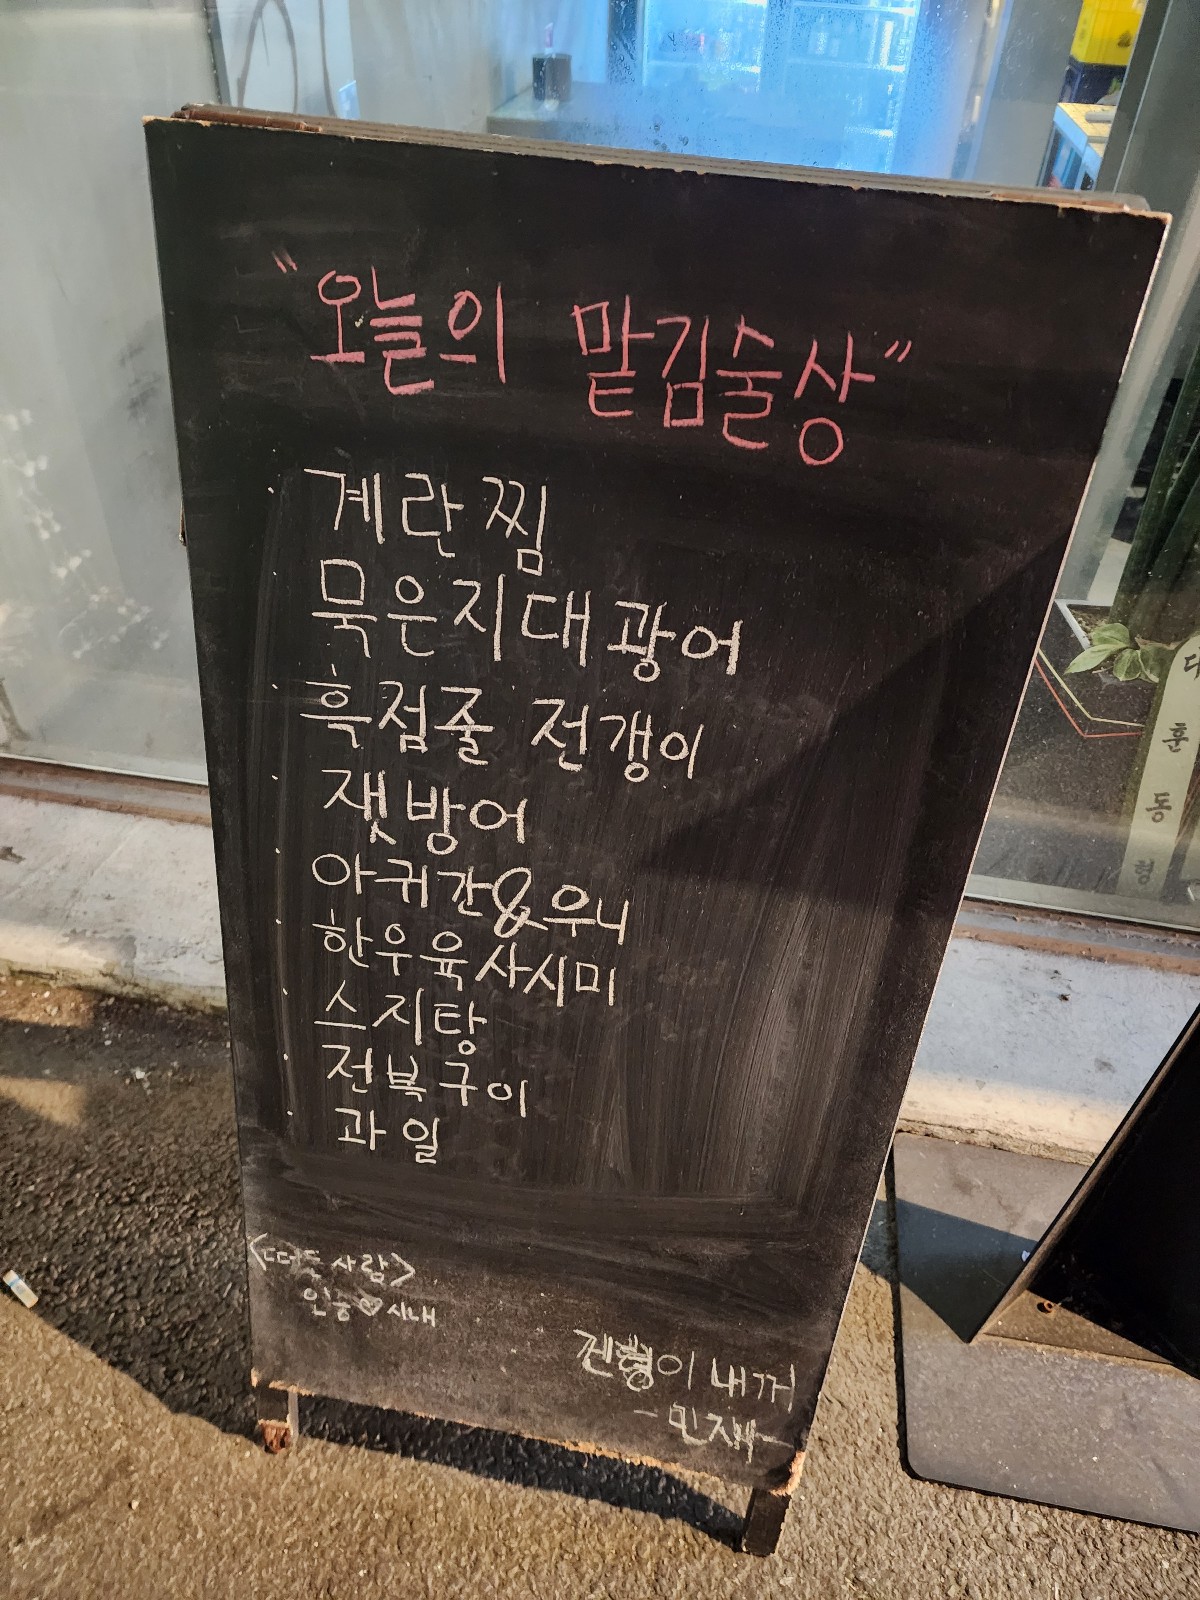 "오늘의 맡김술상"
· 계란찜
묵은지대광어
· 흑점줄 전갱이
· 잿방어
· 아귀간&우니
· 한우육사시미
· 스지탕
· 전복구이
· 과일
<떠든사람>
인능♡시내
이 내꺼
대
훈
동
형